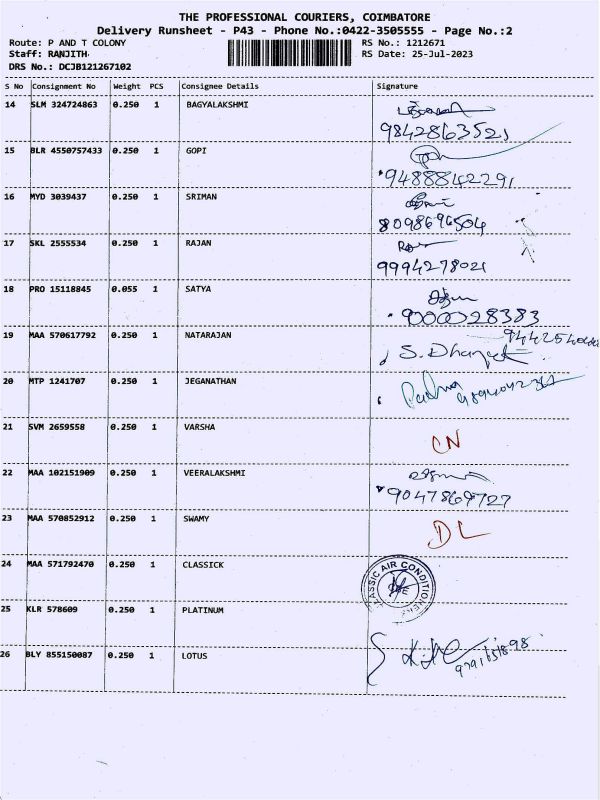 THE PROFESSIONAL COURIERS, COIMBATORE
Delivery Runsheet - P43 - Phone No.:0422-3505555 - Page No.:2
Route: P AND T COLONY RS No.: 1212671
Staff: RANJITH RS Date: 25-Jul-2023
DRS No.: DCJB121267102
S No Consignment No Weight PCS Consignee Details Signature
14 SLM 324724863 0.250 1 BAGYALAKSHMI
9842863521
15 BLR 4550757433 0.250 1 GOPI
9488842291
16 MYD 3039437 0.250 1 SRIMAN
8098696504
17 SKL 2555534 0.250 1 RAJAN
9994278021
18 PRO 15118845 0.055 1 SATYA
9000028383
19 MAA 570617792 0.250 1 NATARAJAN
S. Dhanjeet
20 MTP 1241707 0.250 1 JEGANATHAN
Padma
21 SVM 2659558 0.250 1 VARSHA
CN
22 MAA 102151909 0.250 1 VEERALAKSHMI
9047869727
23 MAA 570852912 0.250 1 SWAMY
DL
24 MAA 571792470 0.250 1 CLASSICK
CLASSIC AIR CONDITIONERS
25 KLR 578609 0.250 1 PLATINUM
26 BLY 855150087 0.250 1 LOTUS
9791651898